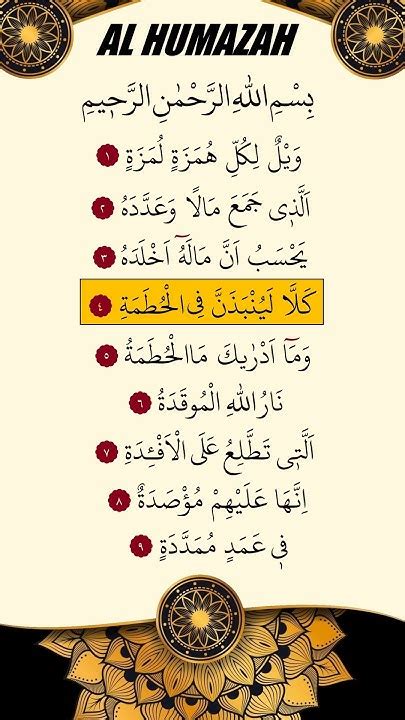 AL HUMAZAH
بِسْمِ اللهِ الرَّحْمٰنِ الرَّحٖيمِ
وَيْلٌ لِكُلِّ هُمَزَةٍ لُمَزَةٍ ١
اَلَّذٖى جَمَعَ مَالًا وَعَدَّدَهُ ٢
يَحْسَبُ اَنَّ مَالَهُٓ اَخْلَدَهُ ٣
كَلَّا لَيُنْبَذَنَّ فِى الْحُطَمَةِ ٤
وَمَٓا اَدْرٰيكَ مَا الْحُطَمَةُ ٥
نَارُ اللهِ الْمُوقَدَةُ ٦
اَلَّتٖى تَطَّلِعُ عَلَى الْاَفْـِٔدَةِ ٧
اِنَّهَا عَلَيْهِمْ مُؤْصَدَةٌ ٨
فٖى عَمَدٍ مُمَدَّدَةٍ ٩